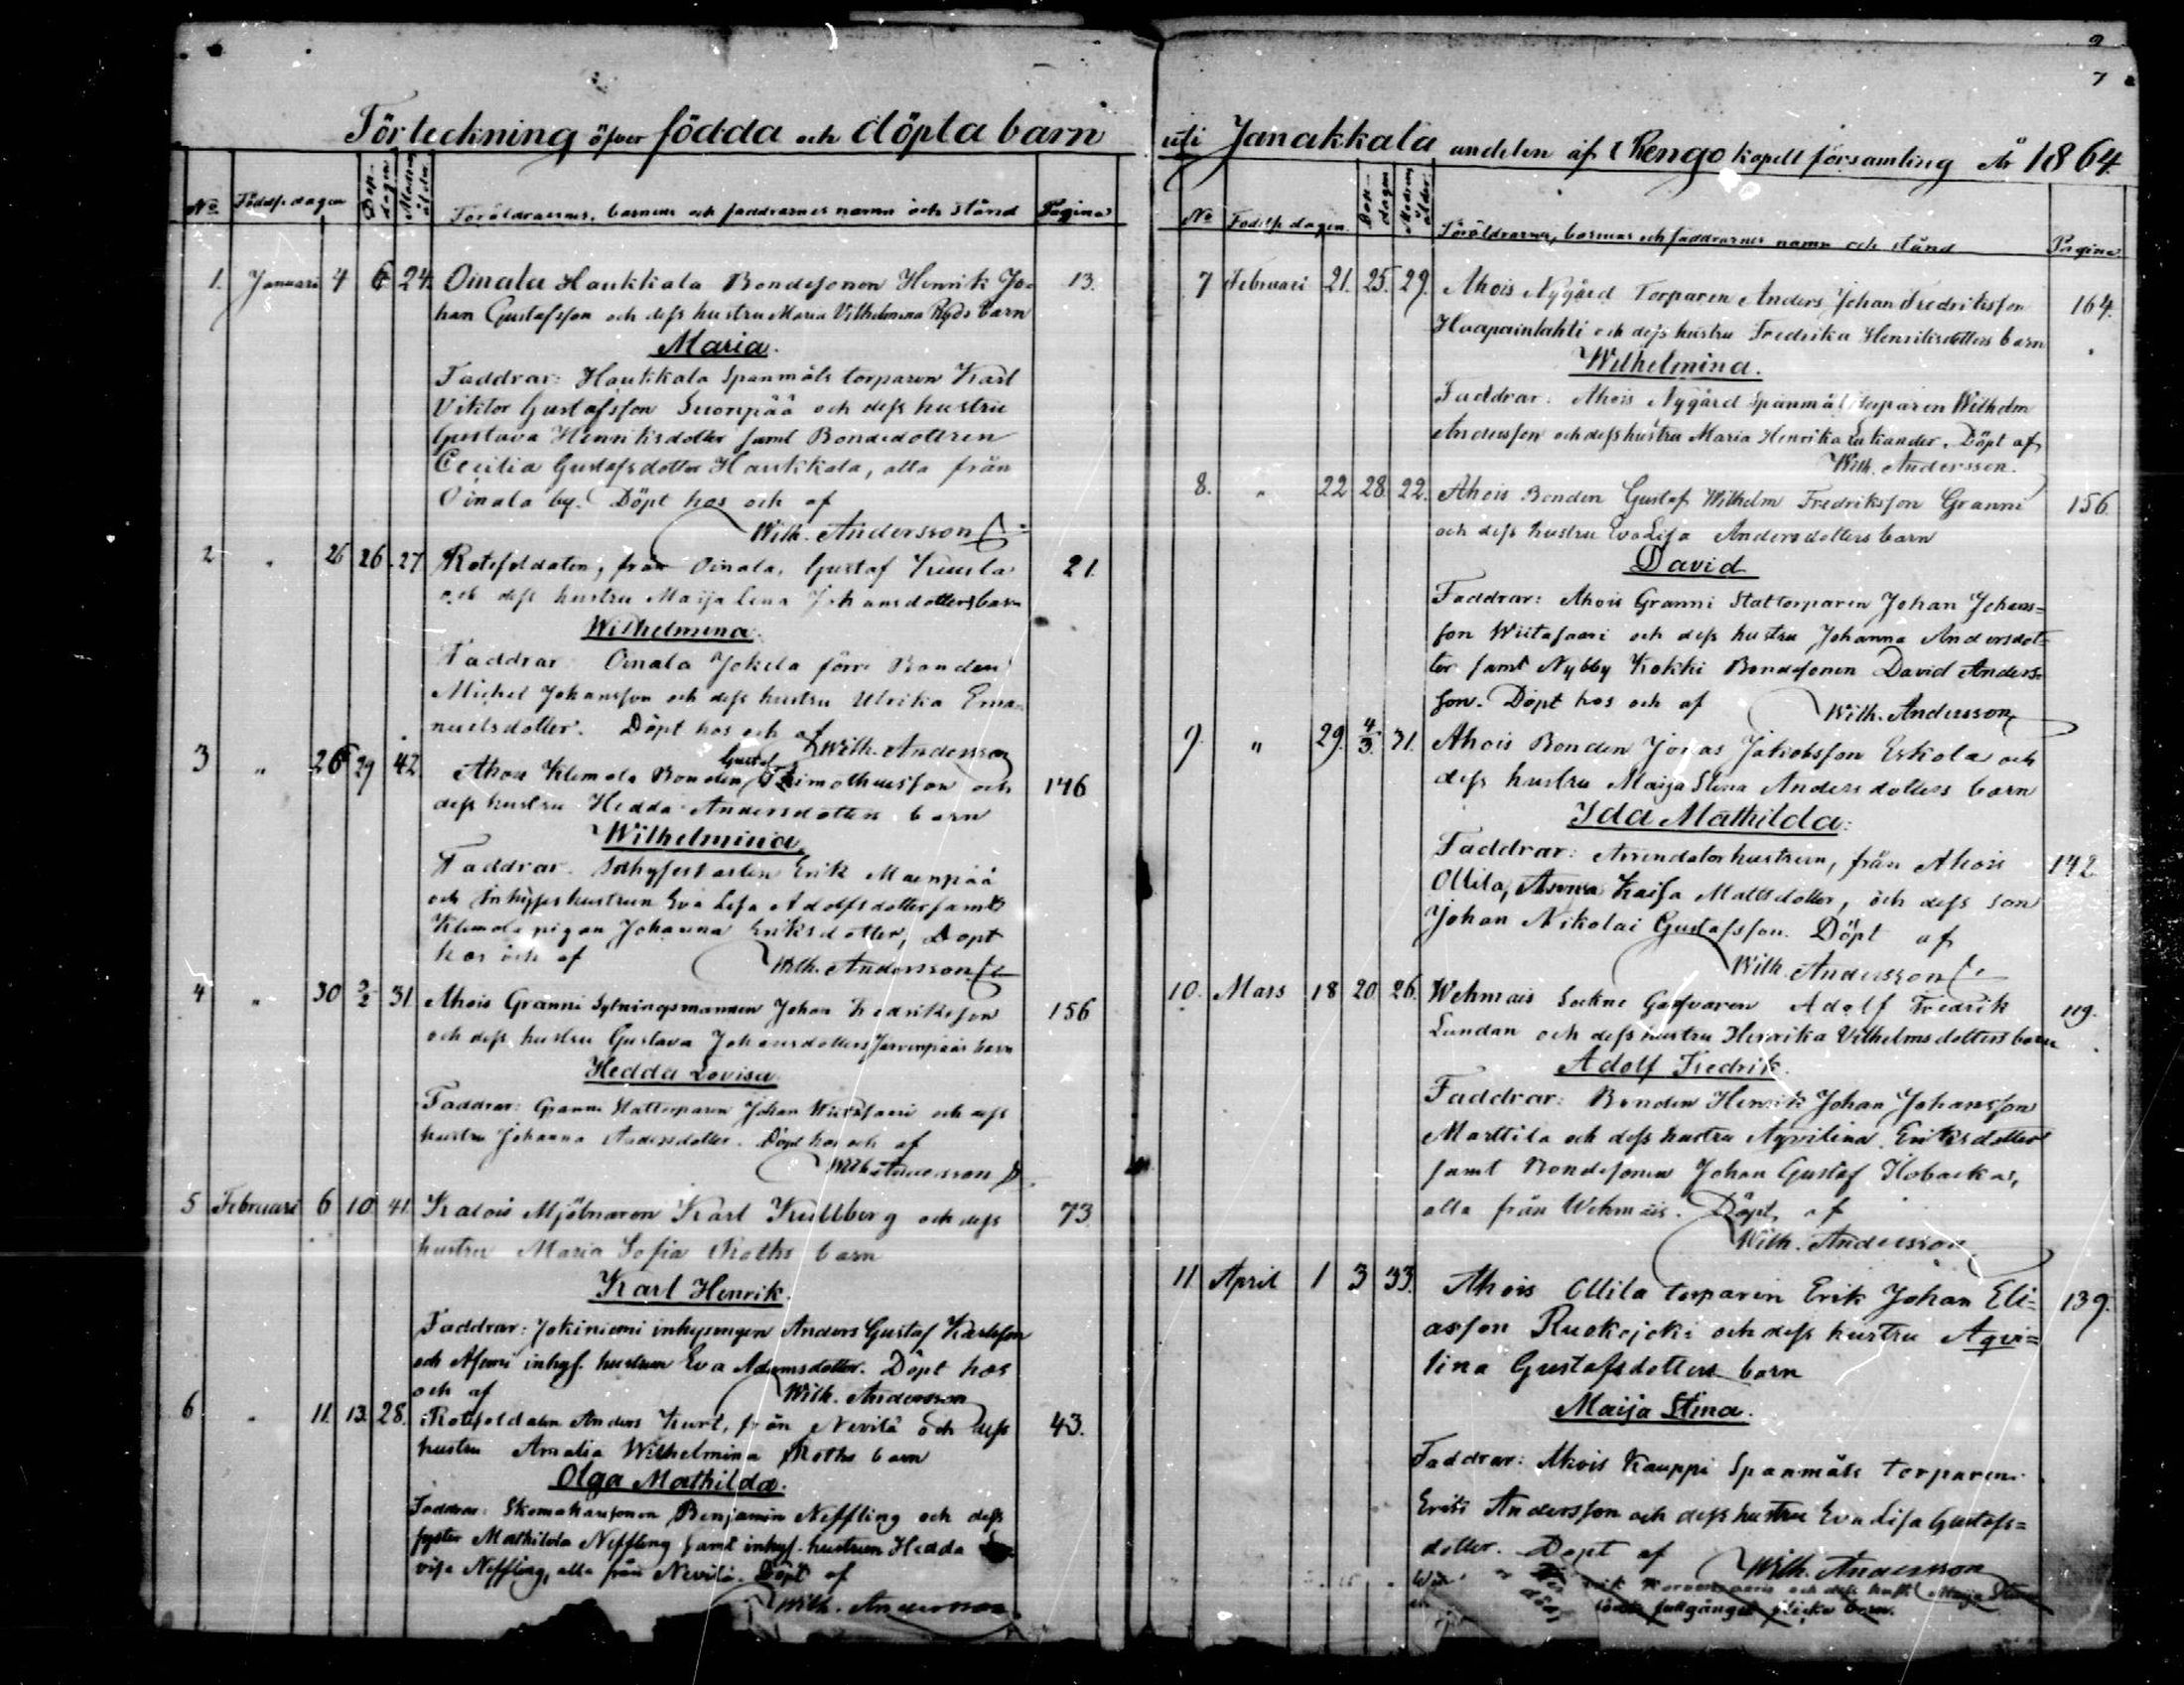 9
7
Förteckning öfver födda och döpta barn
No Födelsedagen Dop-dagen Modrens ålder Föräldrarnes, barnens och faddrarnes namn och stånd Pagina
1. Januari 4 6 24. Oinala Haukkala Bondesonen Henrik Jo= 13.
han Gustafsson och dess hustru Maria Vilhelmina Ryds barn
Maria.
Faddrar: Haukkala Spanmåls torparen Karl
Viktor Gustafsson Suonpää och dess hustru
Gustava Henriksdotter samt Bondedottren
Cecilia Gustafsdotter Haukkala, alla från
Oinala by. Döpt hos och af
Wilh. Andersson
2 " 26 26 27 Rotesoldaten, från Oinala, Gustaf Kuusla 21.
och dess hustru Maija Lena Johansdotters barn
Wilhelmina.
Faddrar Oinala Jokela förre Bonden
Michel Johansson och dess hustru Ulrika Ema=
nuelsdotter. Döpt hos och af
Wilh. Andersson
3 " 26 29 42. Ahois Klemola Bonden Gustaf Thimotheusson och 146
dess hustru Hedda Andersdotters barn
Wilhelmina
Faddrar. Erik Maenpää
och Inhyses hustrun Eva Lisa Adolfsdotter samt
Klemola pigan Johanna Eriksdotter, Döpt
hos och af Wilh. Andersson
4 " 30 2/2 31. Ahois Granni Sytningsmannen Johan Fredriksson 156
och dess hustru Gustava Johansdotters Järvenpääs barn
Hedda Lovisa
Faddrar: Granni Stattorparen Johan Wiitasaari och dess
hustru Johanna Andersdotter. Döpt hos och af
Wilh. Andersson
5 Februari 6 10 41. Kalois Mjölnaren Karl Kullberg och dess 73
hustru Maria Sofia Roths barn
Karl Henrik.
Faddrar: Jokiniemi inhysingen Anders Gustaf Karlsson
och inhys. hustrun Eva Adamsdotter. Döpt hos
och af Wilh. Andersson
6 " 11. 13. 28. Rotesoldaten Anders Kurt, från Nevilä och dess 43.
hustru Amalia Wilhelmina Roths barn
Olga Mathilda.
Faddrar: Skomakaresonen Benjamin Neffling och dess
syster Mathilda Neffling samt inhys. hustrun Hedda Lo
visa Neffling, alla från Nevilä. Döpt af
Wilh. Andersson
uti Janakkala andelen af Rengo kapell församling År 1864.
No Födelsedagen. Dop-dagen Modrens ålder Föräldrarnes, barnens och faddrarnes namn och stånd Pagina
7 Februari 21. 25. 29. Ahois Nygård Torparen Anders Johan Fredriksson 164.
Haapainlahti och dess hustru Fredrika Henriksdotters barn
Wilhelmina.
Faddrar: Ahois Nygård Spanmåls torparen Wilhelm
Andersson och dess hustru Maria Henrika Lukander. Döpt af
Wilh. Andersson.
8. " 22 28. 22. Ahois Bonden Gustaf Wilhelm Fredriksson Granni 156.
och dess hustru Eva Lisa Andersdotters barn
David
Faddrar: Ahois Granni Stattorparen Johan Johans=
son Wiitasaari och dess hustru Johanna Andersdot=
ter samt Nybby Kokki Bondesonen David Anders=
son. Döpt hos och af Wilh. Andersson
9. " 29. 4/3. 31. Ahois Bonden Jonas Jakobsson Eskola och
dess hustru Maija Stina Andersdotters barn
Ida Mathilda:
Faddrar: Arrendators hustrun, från Ahois 142
Ollila, Anna Kaisa Mattsdotter, och dess son
Johan Nikolai Gustafsson. Döpt af
Wilh. Andersson
10. Mars 18 20 26. Wehmais Sockne Garfvaren Adolf Fredrik 119.
Lundan och dess hustru Henrika Vilhelmsdotters barn
Adolf Fredrik.
Faddrar: Bonden Henrik Johan Johansson
Marttila och dess hustru Aqvilina Eriksdotter
samt Bondesonen Johan Gustaf Hobacka,
alla från Wehmais. Döpt af
Wilh. Andersson.
11 April 1 3 33. Ahois Ollila torparen Erik Johan Eli= 139.
asson Ruokojoki och dess hustru Aqvi=
lina Gustafsdotters barn
Maija Stina.
Faddrar: Ahois Kauppi Spanmåls torparen
Erik Andersson och dess hustru Eva Lisa Gustafs=
dotter. Döpt af Wilh. Andersson
och dess hust. Maija Stina
fullgånget flicke barn.